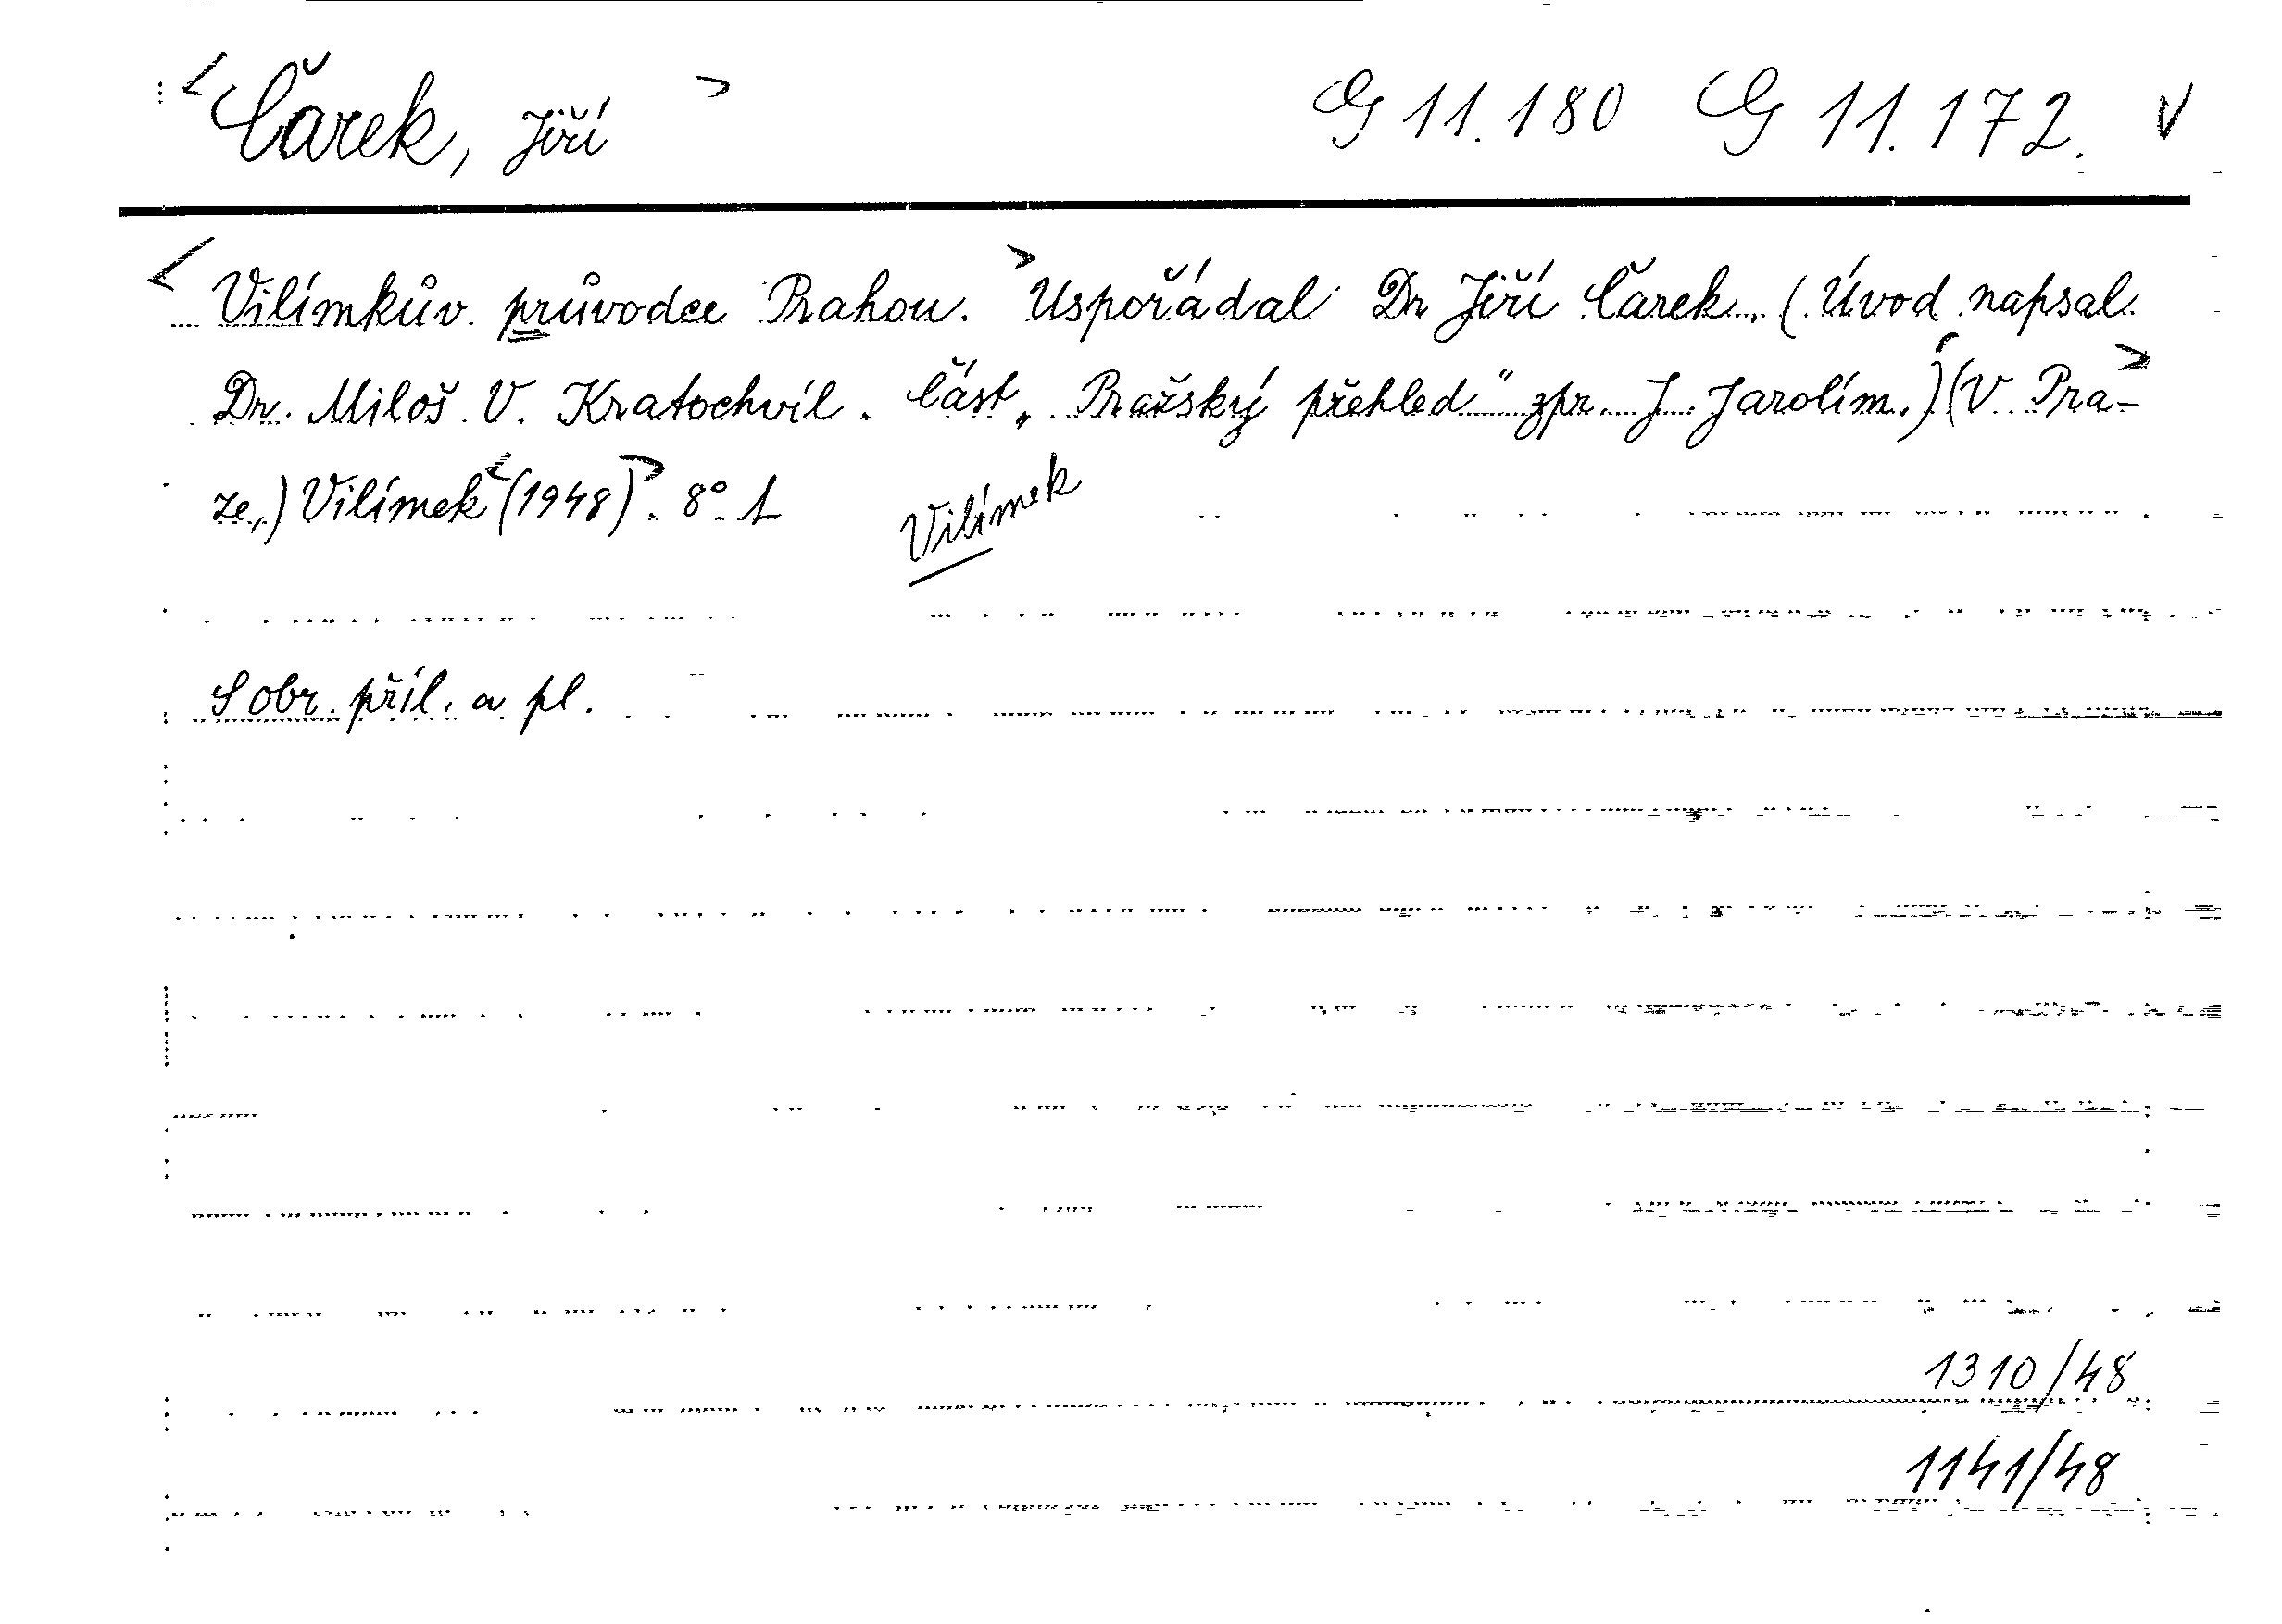 <Čárek, Jiří> G 11.180 G 11.172. V
<Vilímkův průvodce Prahou.> Uspořádal Dr Jiří Čárek. (Úvod napsal
Dr. Miloš V. Kratochvíl. Část „Pražský přehled“ zpr. J. Jarolím.) (V Pra-
ze,) Vilímek (1948). 8° 1
Vilímek
S obr. příl. a pl.
1310/48
1141/48